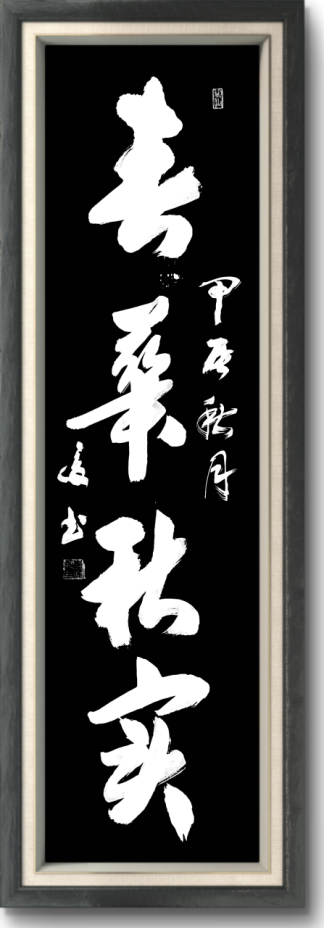 春華秋实
甲辰秋月
书